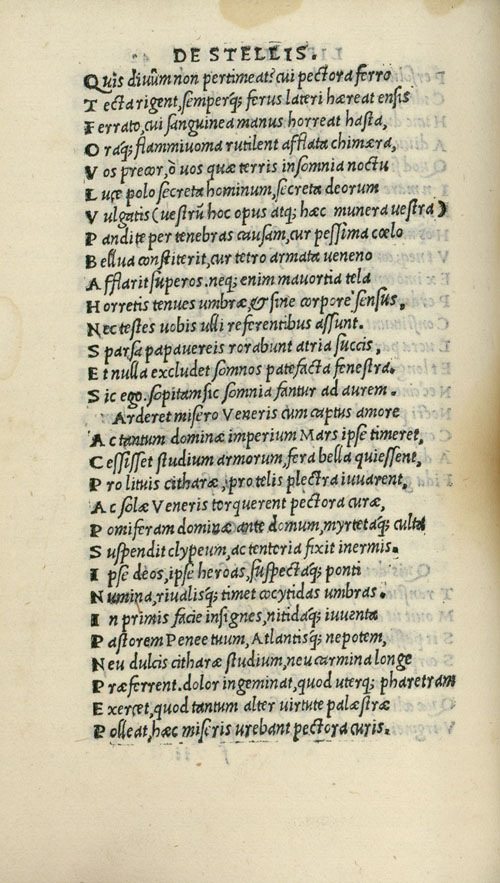 DE STELLIS.
Quis divûm non pertimeat? cui pectora ferro
Tecta rigent, semperq; ferus lateri hæreat ensis
Ferrato, cui sanguinea manus horreat hasta,
Oraq; flammivoma rutilent afflata chimæra,
Vos precor, ò vos quæ terris insomnia noctu
Luce polo secreta hominum, secreta deorum
Vulgatis (vestrũ hoc opus atq; hæc munera vestra)
Pandite per tenebras causam, cur pessima cœlo
Bellua constiterit, cur tetro armata veneno
Afflarit superos. neq; enim mavortia tela
Horretis tenues umbræ, & sine corpore sensus,
Nec testes vobis ulli referentibus assunt.
Sparsa papavereis rorabunt atria succis,
Et nulla excludet somnos patefacta fenestra.
Sic ego. sopitam sic somnia fantur ad aurem.
Arderet misero Veneris cum captus amore
Ac tantum dominæ imperium Mars ipse timeret,
Cessisset studium armorum, fera bella quiessent,
Pro lituis citharæ, pro telis plectra iuvarent,
Ac solæ Veneris torquerent pectora curæ,
Pomiferam dominæ ante domum, myrtetaq; culta
Suspendit clypeum, ac tentoria fixit inermis.
Ipse deos, ipse heroas, suspectaq; ponti
Numina, rivalisq; timet cocytidas umbras.
In primis facie insignes, nitidaq; iuventa
Pastorem Penee tuum, Atlantisq; nepotem,
Neu dulcis citharæ studium, neu carmina longe
Præferrent. dolor ingeminat, quod uterq; pharetram
Exercet, quod tantum alter virtute palæstræ
Polleat, hæc miseris urebant pectora curis.